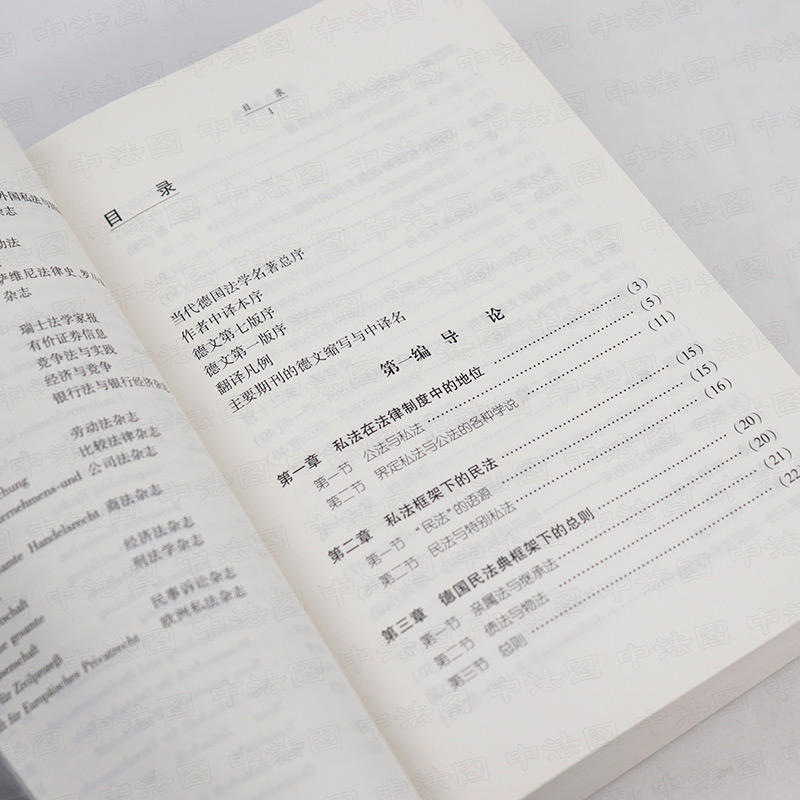 外国私法与国
杂志
动法
萨维尼法律史、罗马
杂志
瑞士法学家报
有价证券信息
竞争法与实践
经济与竞争
银行法与银行经济杂志
劳动法杂志
比较法律杂志
chung 公司法杂志
ternehmens-und
amte Handelsrecht 商法杂志
经济法杂志
刑法学杂志
schaft
e gesamte 民事诉讼杂志
senschaft 欧洲私法杂志
für Zeilprozeß
ft für Europäischen Privatrecht
目 录
1
目 录
当代德国法学名著总序
作者中译本序
德文第七版序
德文第一版序
翻译凡例
主要期刊的德文缩写与中译名
第一编 导 论
第一章 私法在法律制度中的地位 (3)
第一节 公法与私法 (5)
第二节 界定私法与公法的各种学说 (11)
第二章 私法框架下的民法 (15)
第一节 “民法”的语源 (15)
第二节 民法与特别私法 (16)
第三章 德国民法典框架下的总则 (20)
第一节 亲属法与继承法 (20)
第二节 债法与物法 (21)
第三节 总则 (22